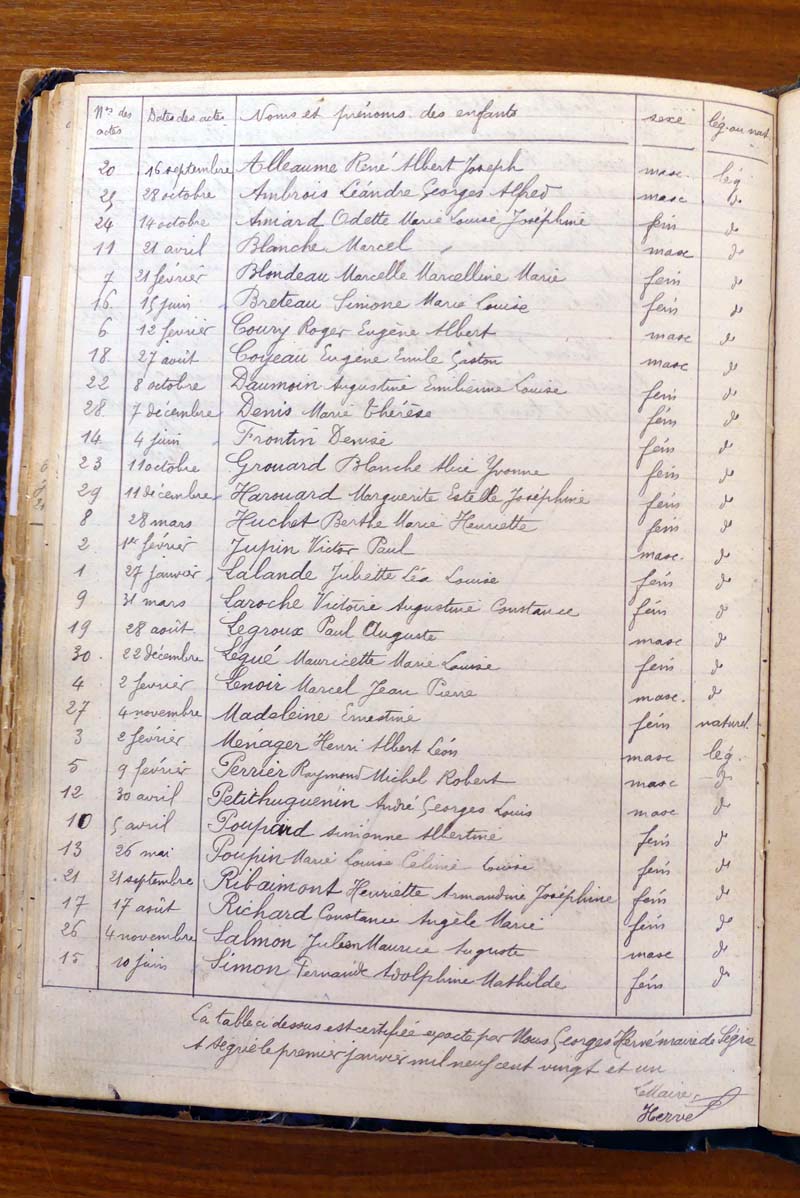 Nos des actes Dates des actes Noms et prénoms des enfants sexe lég. ou nat.
20 16 septembre Alleaume René Albert Joseph masc. lég
25 28 octobre Ambrois Léandre Georges Alfred masc do
24 14 octobre Amiard Odette Marie Louise Joséphine fém do
11 21 avril Blanche Marcel masc do
7 21 février Blondeau Marcelle Marcelline Marie fém do
16 15 juin Breteau Simone Marie Louise fém do
6 12 février Coury Roger Eugène Albert masc do
18 27 août Coyeau Eugène Emile Gaston masc do
22 8 octobre Daumoin Augustine Emilienne Louise fém do
28 7 décembre Denis Marie Thérèse fém do
14 4 juin Frontin Denise fém do
23 11 octobre Grouard Blanche Alice Yvonne fém do
29 11 décembre Harouard Marguerite Estelle Joséphine fém do
8 28 mars Huchet Berthe Marie Henriette fém do
2 1er février Jupin Victor Paul masc. do
1 27 janvier Lalande Juliette Léa Louise fém do
9 31 mars Laroche Victoire Augustine Constance fém do
19 28 août Legroux Paul Auguste masc do
30 22 décembre Legué Mauricette Marie Louise fém do
4 2 février Lenoir Marcel Jean Pierre masc. do
27 4 novembre Madeleine Ernestine fém naturel.
3 2 février Ménager Henri Albert Léon masc lég.
5 9 février Perrier Raymond Michel Robert masc do
12 30 avril Petithuguenin André Georges Louis masc do
10 5 avril Poupard Simonne Albertine fém do
13 26 mai Poupin Marie Louise Céline Louise fém do
21 21 septembre Ribaimont Henriette Armandine Joséphine fém do
17 17 août Richard Constance Angèle Marie fém do
26 4 novembre Salmon Julien Maurice Auguste masc do
15 10 juin Simon Fernande Adolphine Mathilde fém do
La table ci dessus est certifiée exacte par Nous Georges Hervé maire de Ségrie
A Ségrie le premier janvier mil neuf cent vingt et un
Le Maire,
Hervé